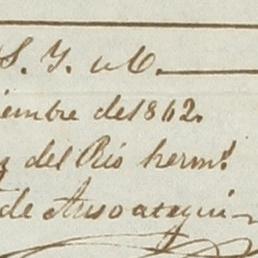 S. Y. u O.
iembre de 1862.
z del Rio herms.
de Ansoategui